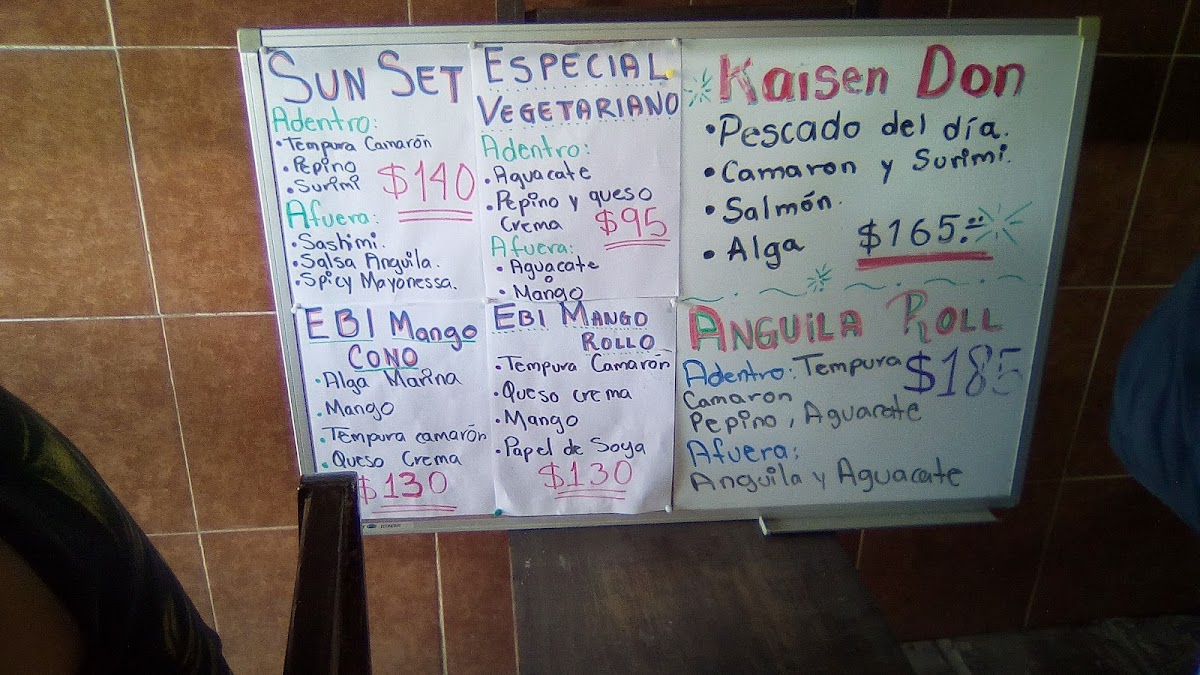 SUN SET
Adentro:
• Tempura Camarón
• Pepino
• Surimi
$140
Afuera:
• Sashimi.
• Salsa Anguila.
• Spicy Mayonessa.
ESPECIAL
VEGETARIANO
Adentro:
• Aguacate
• Pepino y queso
Crema
$95
Afuera:
• Aguacate
o
• Mango
Kaisen Don
• Pescado del día.
• Camaron y Surimi.
• Salmón.
• Alga
$165.=
EBI Mango
CONO
• Alga Marina
• Mango
• Tempura camarón
• Queso Crema
$130
EBI MANGO
ROLLO
• Tempura Camarón
• Queso crema
• Mango
• Papel de Soya
$130
ANGUILA ROLL
Adentro: Tempura
$185
Camaron
Pepino, Aguacate
Afuera:
Anguila y Aguacate